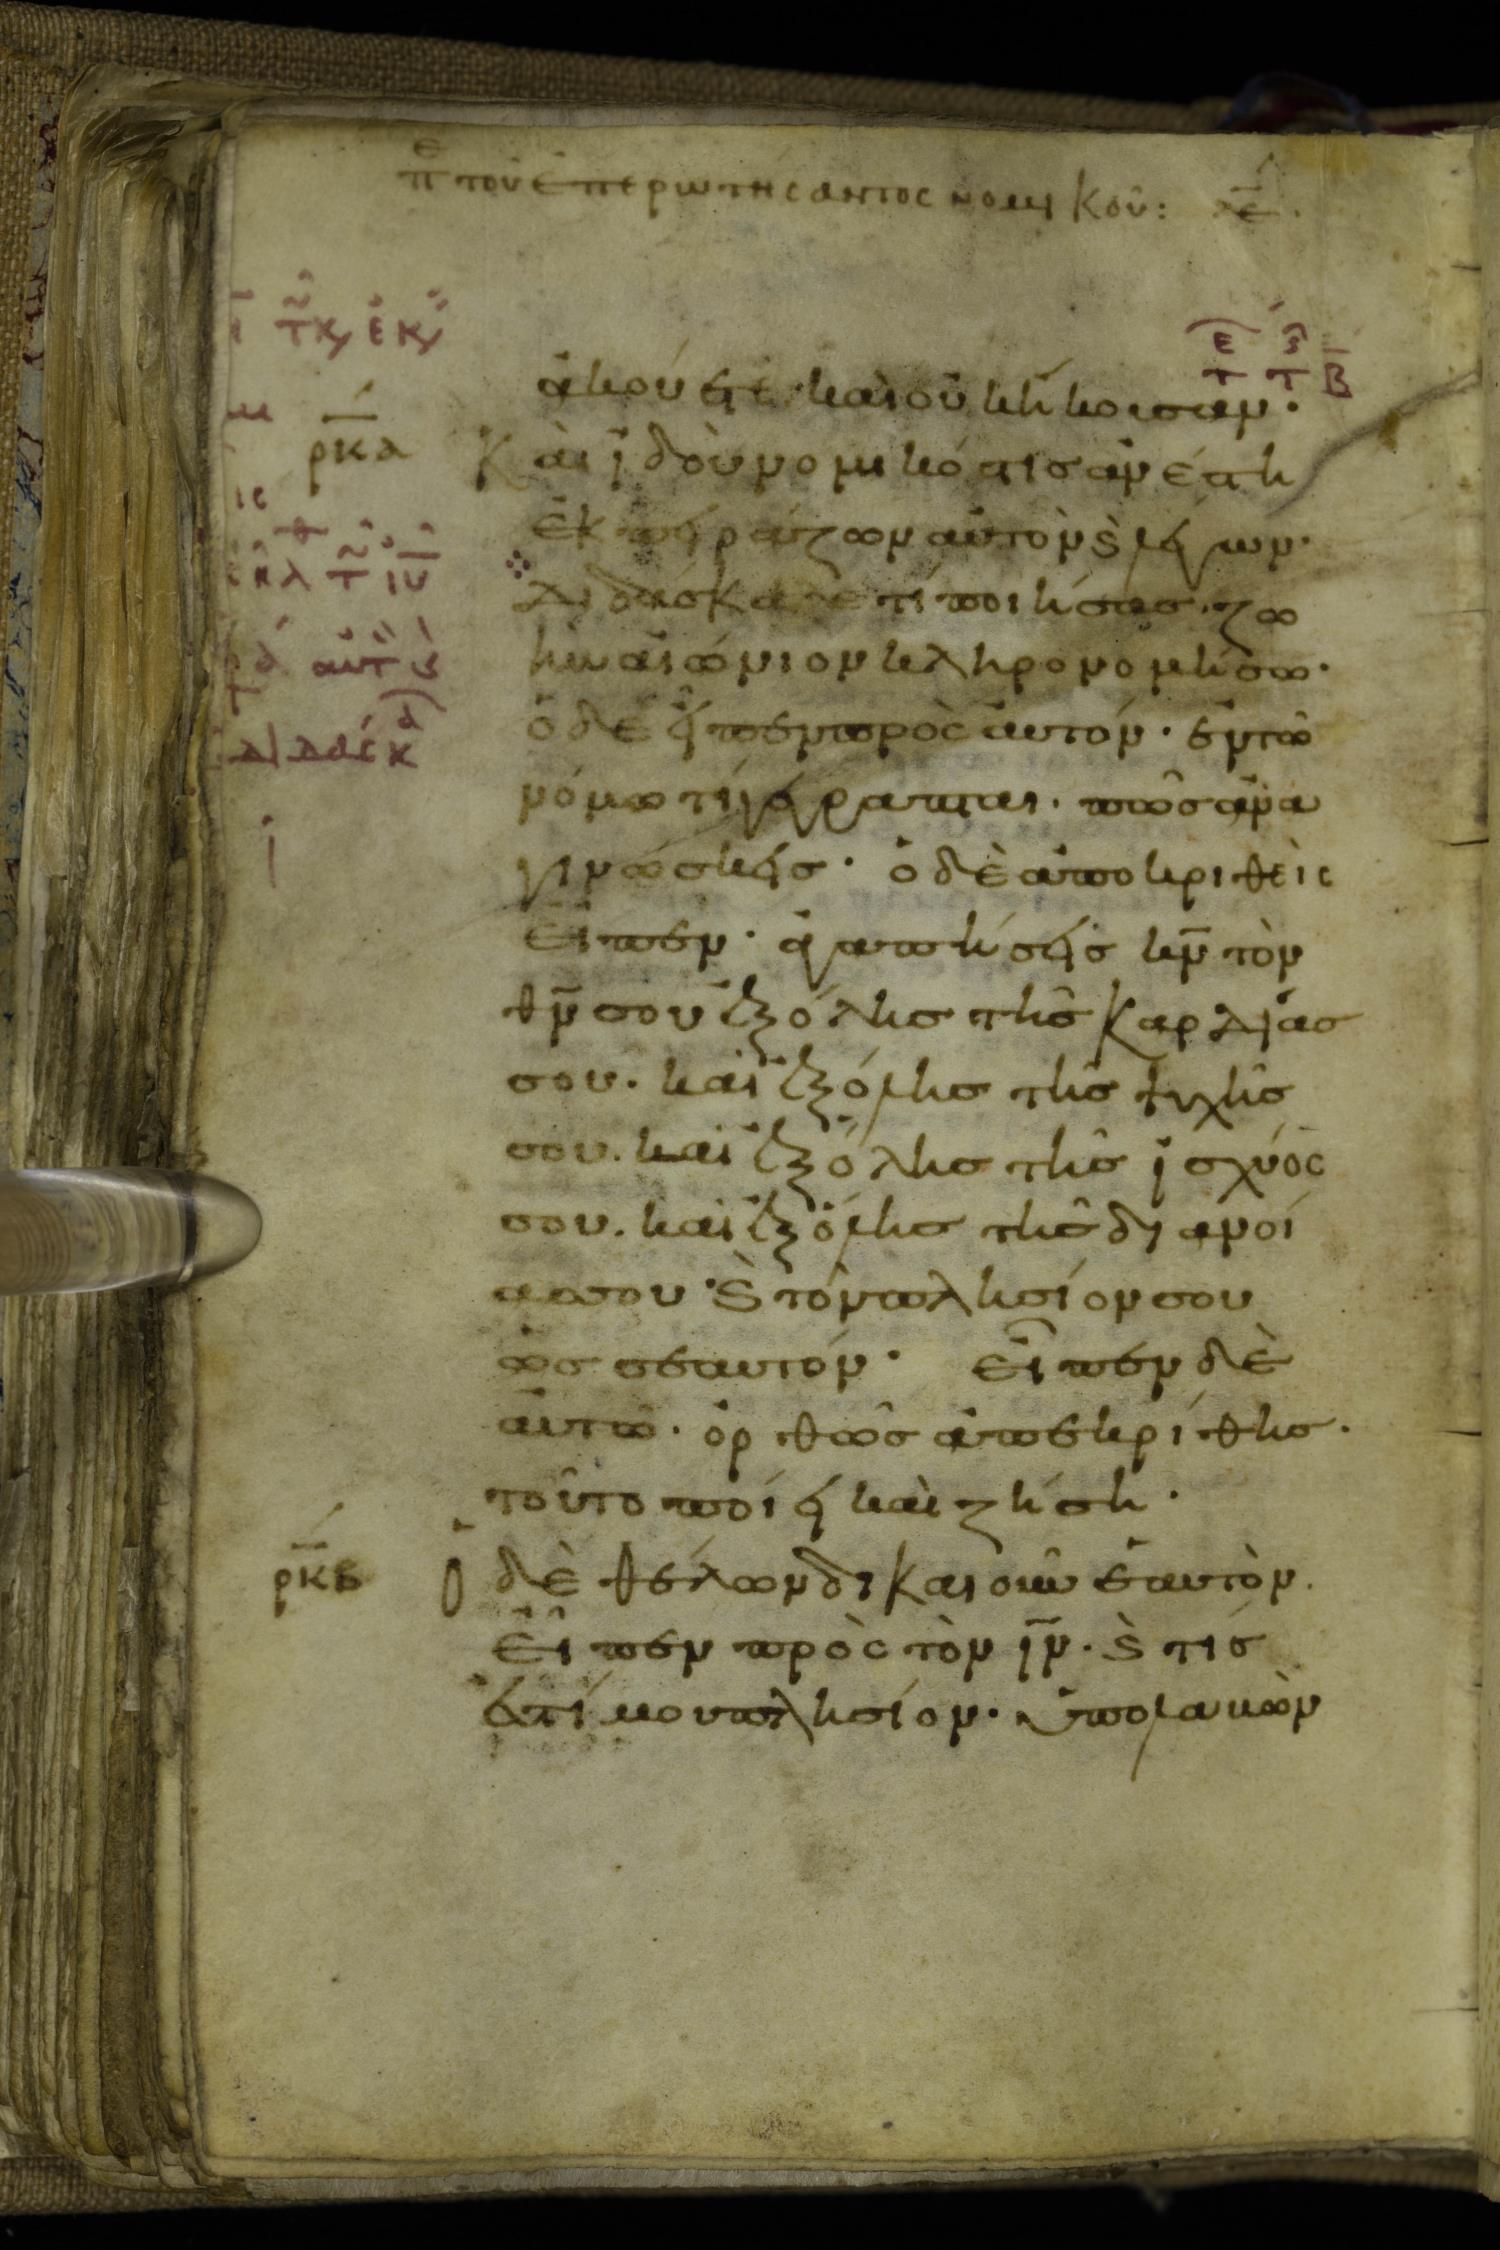 πε τοῦ ἐπερωτήσαντος νομικοῦ: λε.
ἀκούετε· καὶ οὐκ ἤκουσαν·
ρκα Καὶ ἰδοὺ νομικός τις ἀνέστη
ἐκπειράζων αὐτὸν ϛ λέγων·
Διδάσκαλε τί ποιήσας· ζω
ὴν αἰώνιον κληρονομήσω·
ὁ δὲ εἶπεν πρὸς αὐτόν· ἐν τῶ
νόμω τί γέγραπται· πῶς ἀνα
γινώσκεις· ὁ δὲ ἀποκριθεὶς
εἶπεν· ἀγαπήσεις κν τὸν
θν σου ἐξ ὅλης τῆς καρδίας
σου· καὶ ἐξ ὅλης τῆς ψυχῆς
σου· καὶ ἐξ ὅλης τῆς ἰσχύος
σου· καὶ ἐξ ὅλης τῆς διανοί
ας σου· ϛ τὸν πλησίον σου
ὡς σεαυτόν· εἶπεν δὲ
αὐτῶ· ὀρθῶς ἀπεκρίθης·
τοῦτο ποίει καὶ ζήση·
ρκβ ὁ δὲ θέλων δικαιοῦν ἑαυτὸν
εἶπεν πρὸς τὸν ιν· ϛ τίς
ἐστί μου πλησίον· ὑπολαβὼν